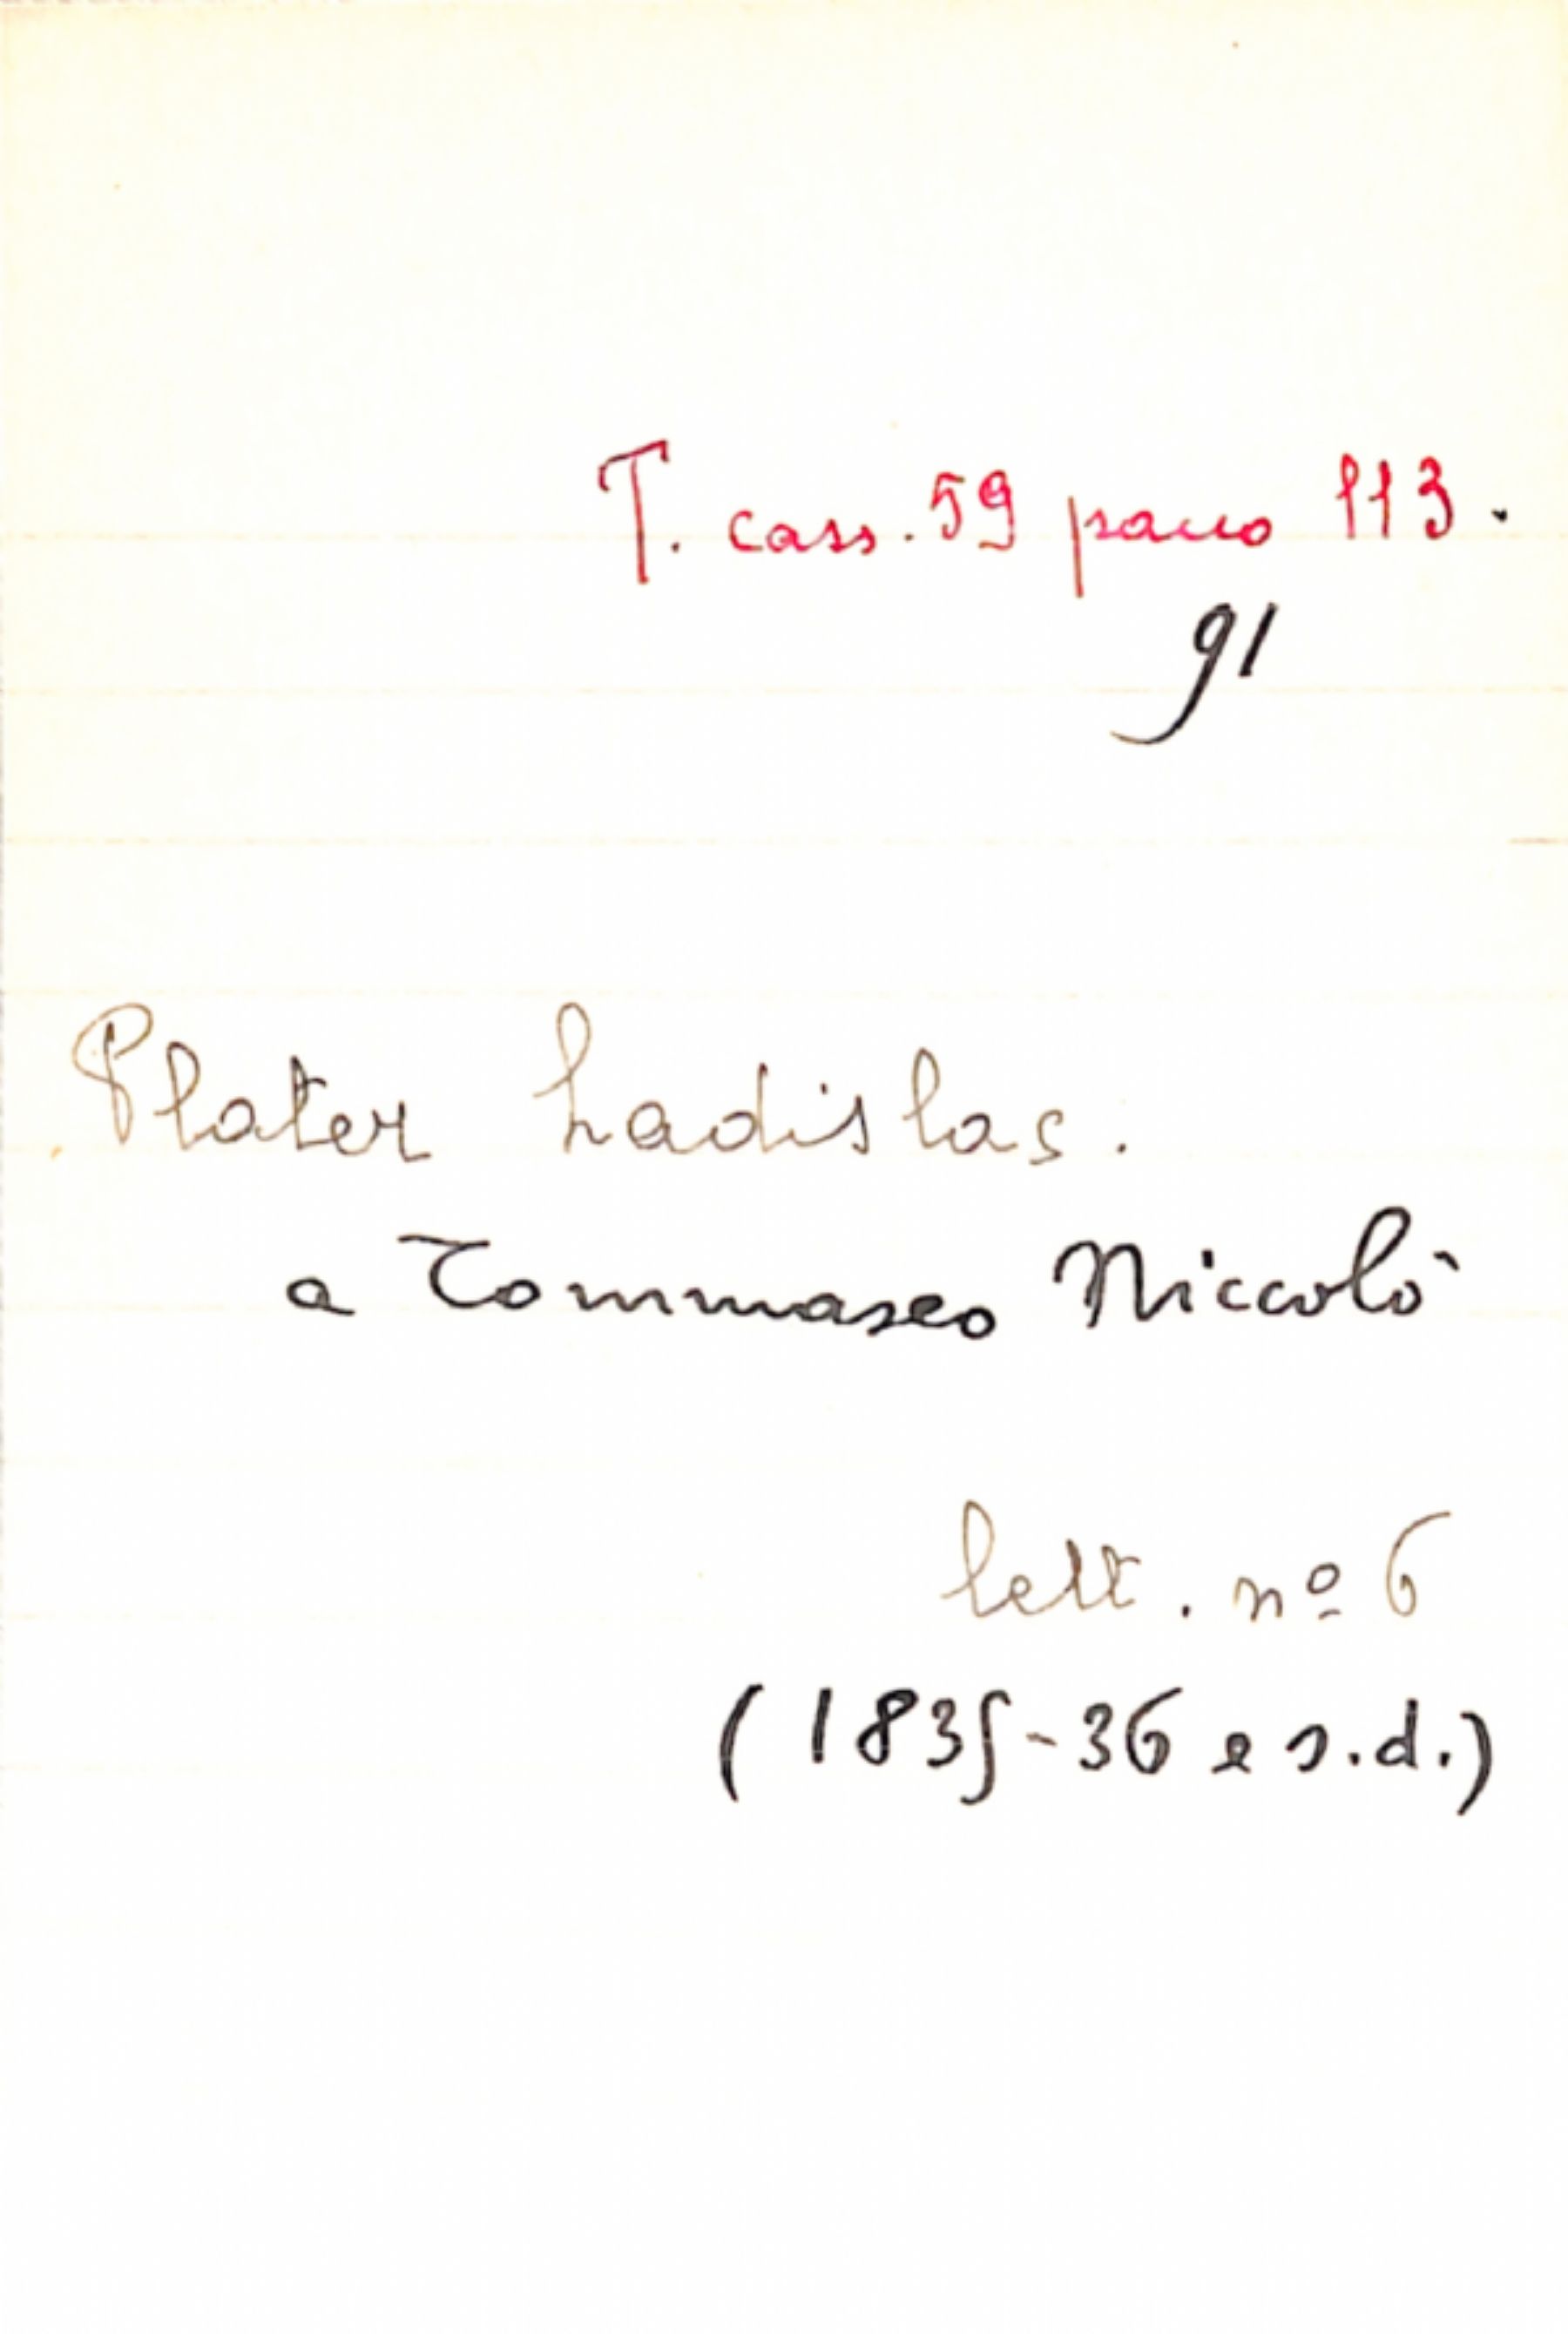 T. cass. 59 pacco 113.
91
Plater Ladislas.
a Tommaseo Niccolò
lett. nº 6
(1835-36 e s.d.)